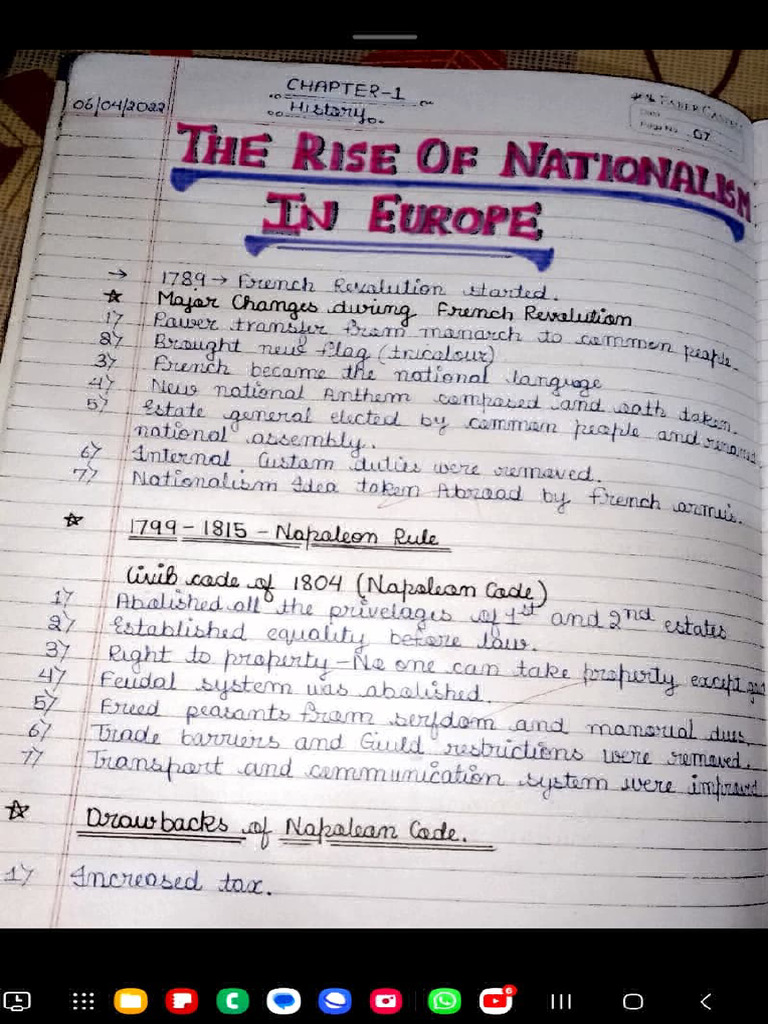 CHAPTER-1
06/04/2022
History
FABER-CASTELL
Date
Page No. 07
THE RISE OF NATIONALISM
IN EUROPE
→ 1789 → French Revolution started.
☆ Major Changes during French Revolution
1) Power transfer from manarch to common people.
2) Brought new flag (tricolour)
3) French became the national language
4) New national Anthem composed and oath taken.
5) Estate general elected by common people and renamed
national assembly.
6) Internal Custom duties were removed.
7) Nationalism Idea taken Abroad by french armies.
☆ 1799 - 1815 - Napoleon Rule
Civil code of 1804 (Napolean Code)
1) Abolished all the privelages of 1st and 2nd estates
2) Established equality before law.
3) Right to property - No one can take property except
4) Feudal system was abolished.
5) Freed peasants from serfdom and manorial dues.
6) Trade barriers and Guild restrictions were removed.
7) Transport and communication system were improved
☆ Drawbacks of Napolean Code.
1) Increased tax.
6